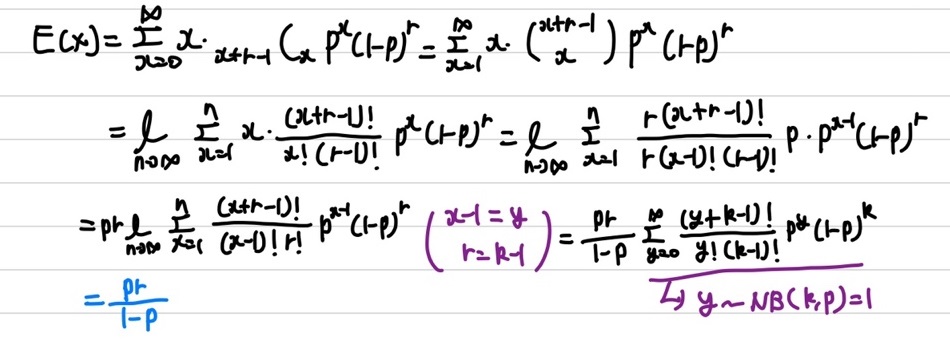 E(x) = ∞Σx=0 x · x+r-1 C x p^x (1-p)^r = ∞Σx=1 x · (x+r-1 x) p^x (1-p)^r
= l n→∞ nΣx=1 x · (x+r-1)! / x! (r-1)! p^x (1-p)^r = l n→∞ nΣx=1 r(x+r-1)! / r(x-1)! (r-1)! p · p^x-1 (1-p)^r
= pr l n→∞ nΣx=1 (x+r-1)! / (x-1)! r! p^x-1 (1-p)^r ( x-1 = y r = k-1 ) = pr / 1-p ∞Σy=0 (y+k-1)! / y! (k-1)! p^y (1-p)^k
= pr / 1-p ↳ y ~ NB(k,p) = 1